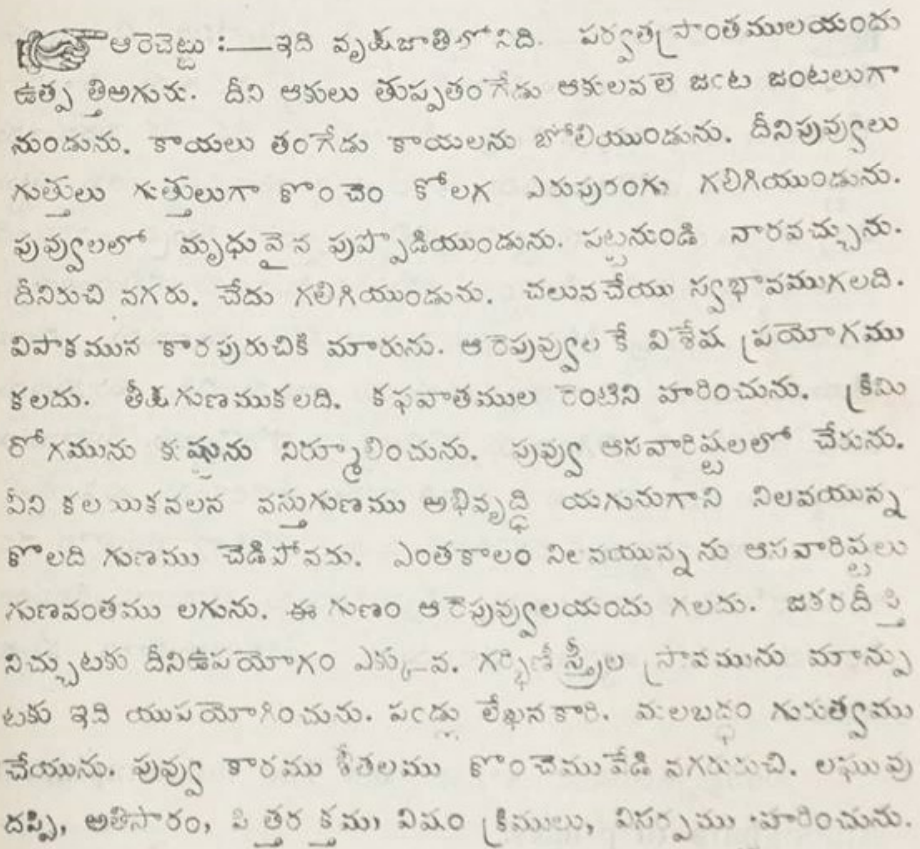 ఆరెచెట్టు :—ఇది వృక్షజాతిలోనిది. పర్వత ప్రాంతములయందు
ఉత్పత్తిఅగును. దీని ఆకులు తుప్పతంగేడు ఆకులవలె జంట జంటలుగా
నుండును. కాయలు తంగేడు కాయలను బోలియుండును. దీనిపువ్వులు
గుత్తులు గుత్తులుగా కొంచెం కోలగ ఎరుపురంగు గలిగియుండును.
పువ్వులలో మృధువైన పుప్పొడియుండును. పట్టనుండి నారవచ్చును.
దీనిరుచి వగరు. చేదు గలిగియుండును. చలువచేయు స్వభావముగలది.
విపాకమున కారపురుచికి మారును. ఆరెపువ్వుల కే విశేష ప్రయోగము
కలదు. తీక్షగుణముకలది. కఫవాతముల రెంటిని హరించును. క్రిమి
రోగమును కుష్ఠును నిర్మూలించును. పువ్వు ఆసవారిష్టలలో చేరును.
వీని కలయికవలన వస్తుగుణము అభివృద్ధి యగునుగాని నిలవయున్న
కొలది గుణము చెడిపోవదు. ఎంతకాలం నిలవయున్నను ఆసవారిష్టలు
గుణవంతము లగును. ఈ గుణం ఆరెపువ్వులయందు గలదు. జఠరదీప్తి
నిచ్చుటకు దీనిఉపయోగం ఎక్కువ. గర్భిణీ స్త్రీల స్రావమును మాన్పు
టకు ఇది యుపయోగించును. పండ్లు లేఖనకారి. మలబద్ధం గురుత్వము
చేయును. పువ్వు కారము శీతలము కొంచెమువేడి వగరురుచి. లఘువు
దప్పి, అతిసారం, పిత్తరక్తము విషం క్రిములు, విసర్పము హరించును.